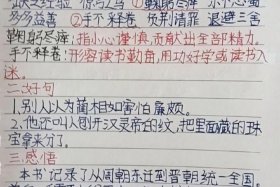 ①鞠躬尽瘁
②手不释卷 负荆请罪 退避三舍
鞠躬尽瘁:指小心谨慎,贡献出全部精力。
手不释卷:形容读书勤奋,用功好学或读书入
迷。
二.好句
1.别人以为蔺相如害怕廉颇。
2.他还叫人刨开汉灵帝的坟,把里面藏的珠
宝拿来分了。
三.感悟
本书记录了从周朝东迁到晋朝统一全国